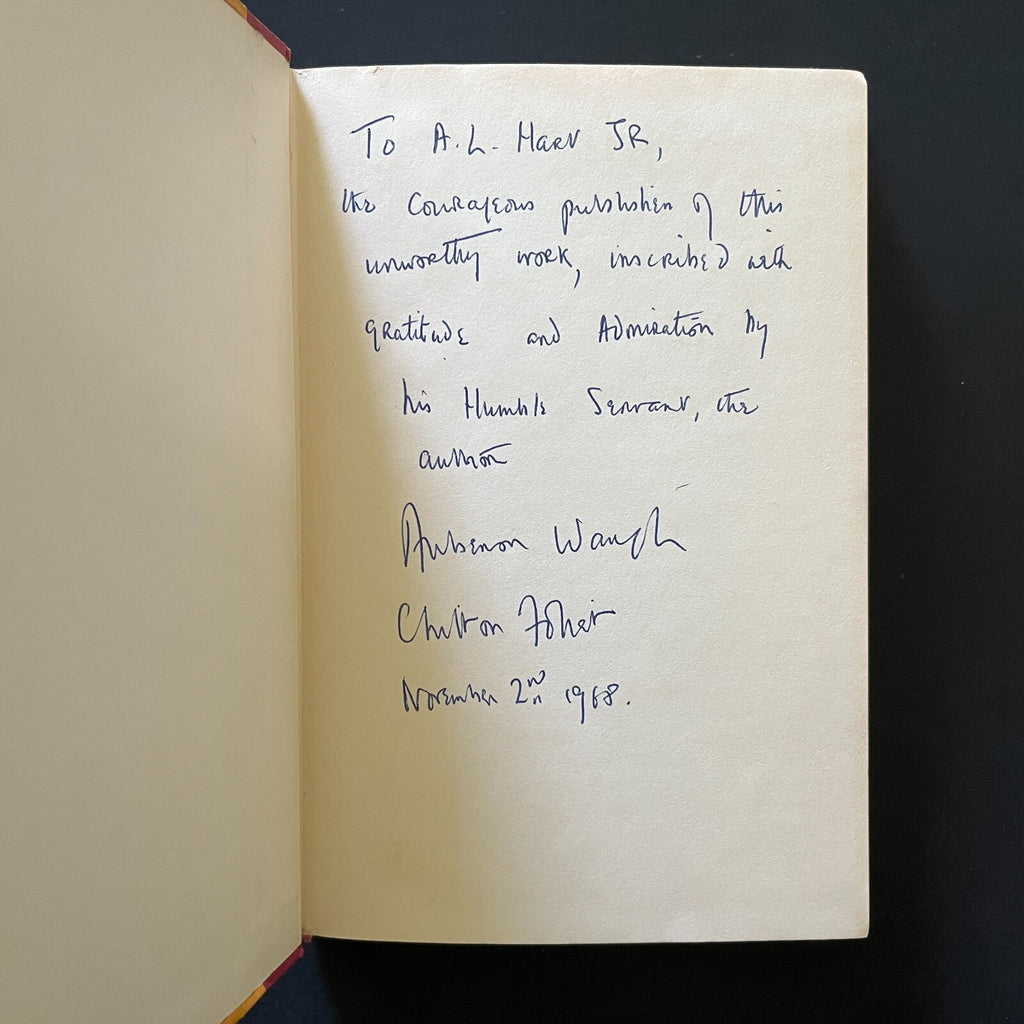 To A.L. Hart JR,
the Courageous publisher of this
unworthy work, inscribed with
gratitude and Admiration by
his Humble Servant, the
author
Auberon Waugh
Chilton Foliat
November 2nd 1968.